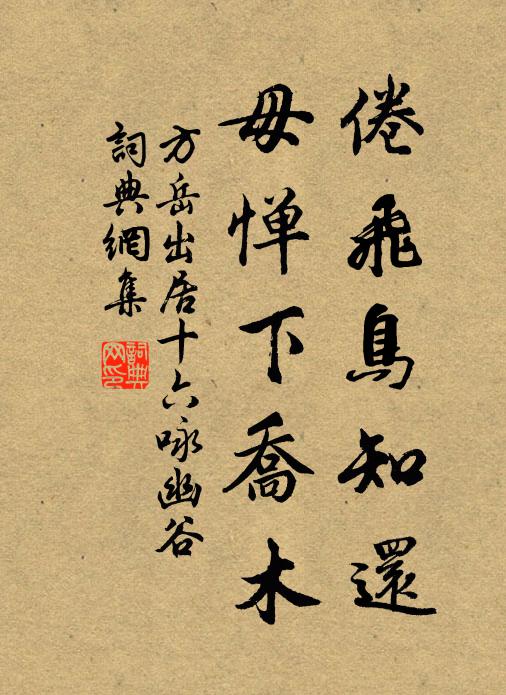 倦飛鳥知還
毋惮下喬木
方岳出居十六咏幽谷
詞典網集
詞典网印